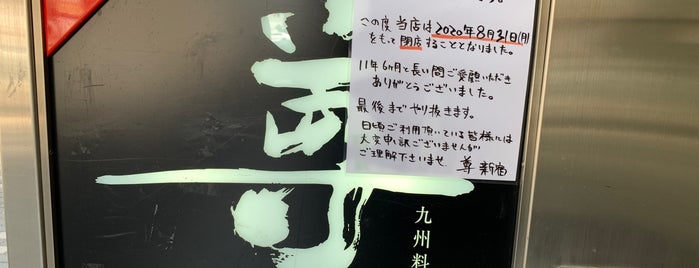 この度 当店は2020年8月31日(月)
をもって閉店することとなりました。
11年6ヶ月と長い間ご愛顧いただき
ありがとうございました。
最後までやり抜きます。
日頃ご利用頂いている皆様には
大変申し訳ございませんが
ご理解下さいませ 尊 新宿
尊
九州料